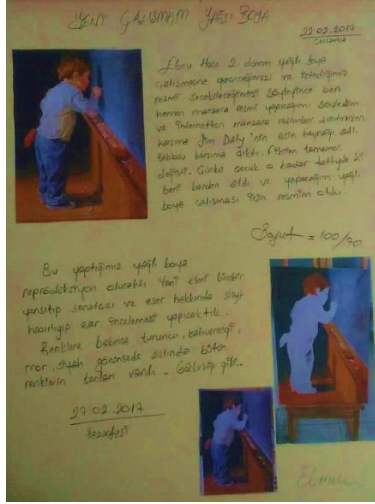 YENİ ÇALIŞMAM YAĞLI BOYA
22.02.2017
Çarşamba
Ebru Hoca 2. dönem yağlı boya
çalışmasına geçeceğimizi ve istediğimiz
resmi seçebileceğimizi söyleyince ben
hemen manzara resmi yapacağım söyledim
ve internetten manzara resimleri
karşıma Jim Daly'nin esin kaynağı adlı
tablosu karşıma çıktı. Fikrim tamamen
değişti. Çünkü çocuk o kadar tatlıydı ki
beni benden aldı ve yapacağım yağlı
boya çalışması için resmim oldu.
Boyut = 100/70
Bu yaptığımız yağlı boya
reprodüksiyon olacaktı. Yani eseri birebir
yansıtıp sanatçısı ve eser hakkında slayt
hazırlayıp eser incelemesi yapacaktık.
Renklere bakınca turuncu, kahverengi,
mor, siyah görünsede aslında bütün
renklerin tonları vardı.
27.02.2017
Pazartesi